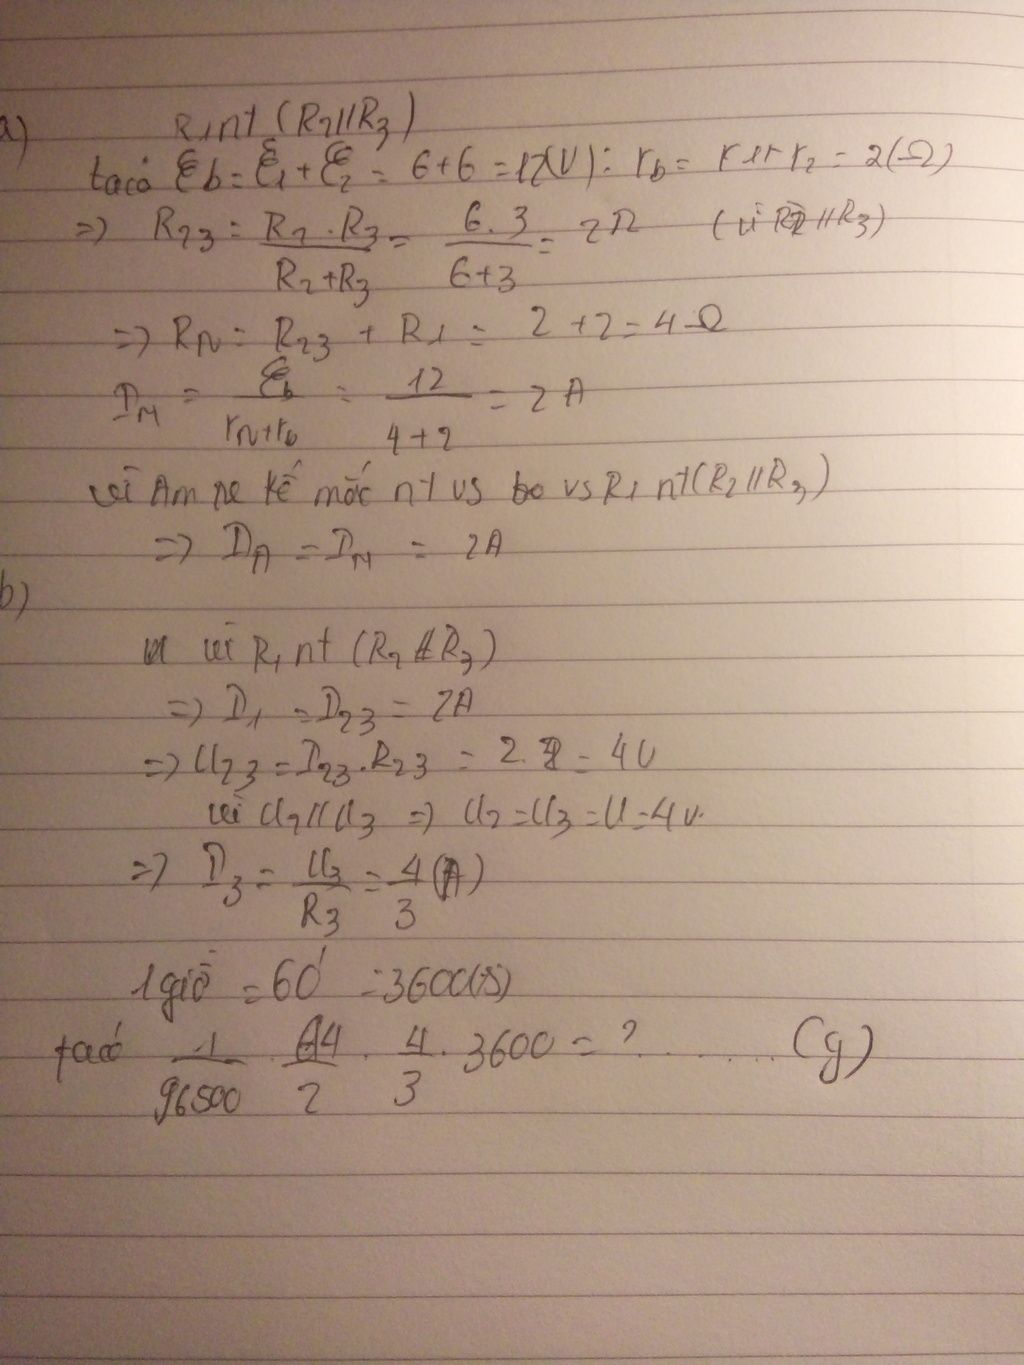 a) R1 nt (R2//R3)
ta có ℰb = ℰ1 + ℰ2 = 6+6 = 12(V) : rb = r1 + r2 = 2(Ω)
=> R23 = R2 . R3 / R2 + R3 = 6.3 / 6+3 = 2Ω (vì R2 // R3)
=> RN = R23 + R1 = 2 + 2 = 4Ω
IN = ℰb / rN + rb = 12 / 4+2 = 2A
vì Am pe kế mắc nt vs bo vs R1 nt (R2 // R3)
=> IA = IN = 2A
b)
vì R1 nt (R2 // R3)
=> I1 = I23 = 2A
=> U23 = I23 . R23 = 2.2 = 4V
vì U2 // U3 => U2 = U3 = U = 4V.
=> I3 = U3 / R3 = 4 / 3 (A)
1 giờ = 60' = 3600(s)
ta có 1 / 96500 . 64 / 2 . 4 / 3 . 3600 = ? ........ (g)